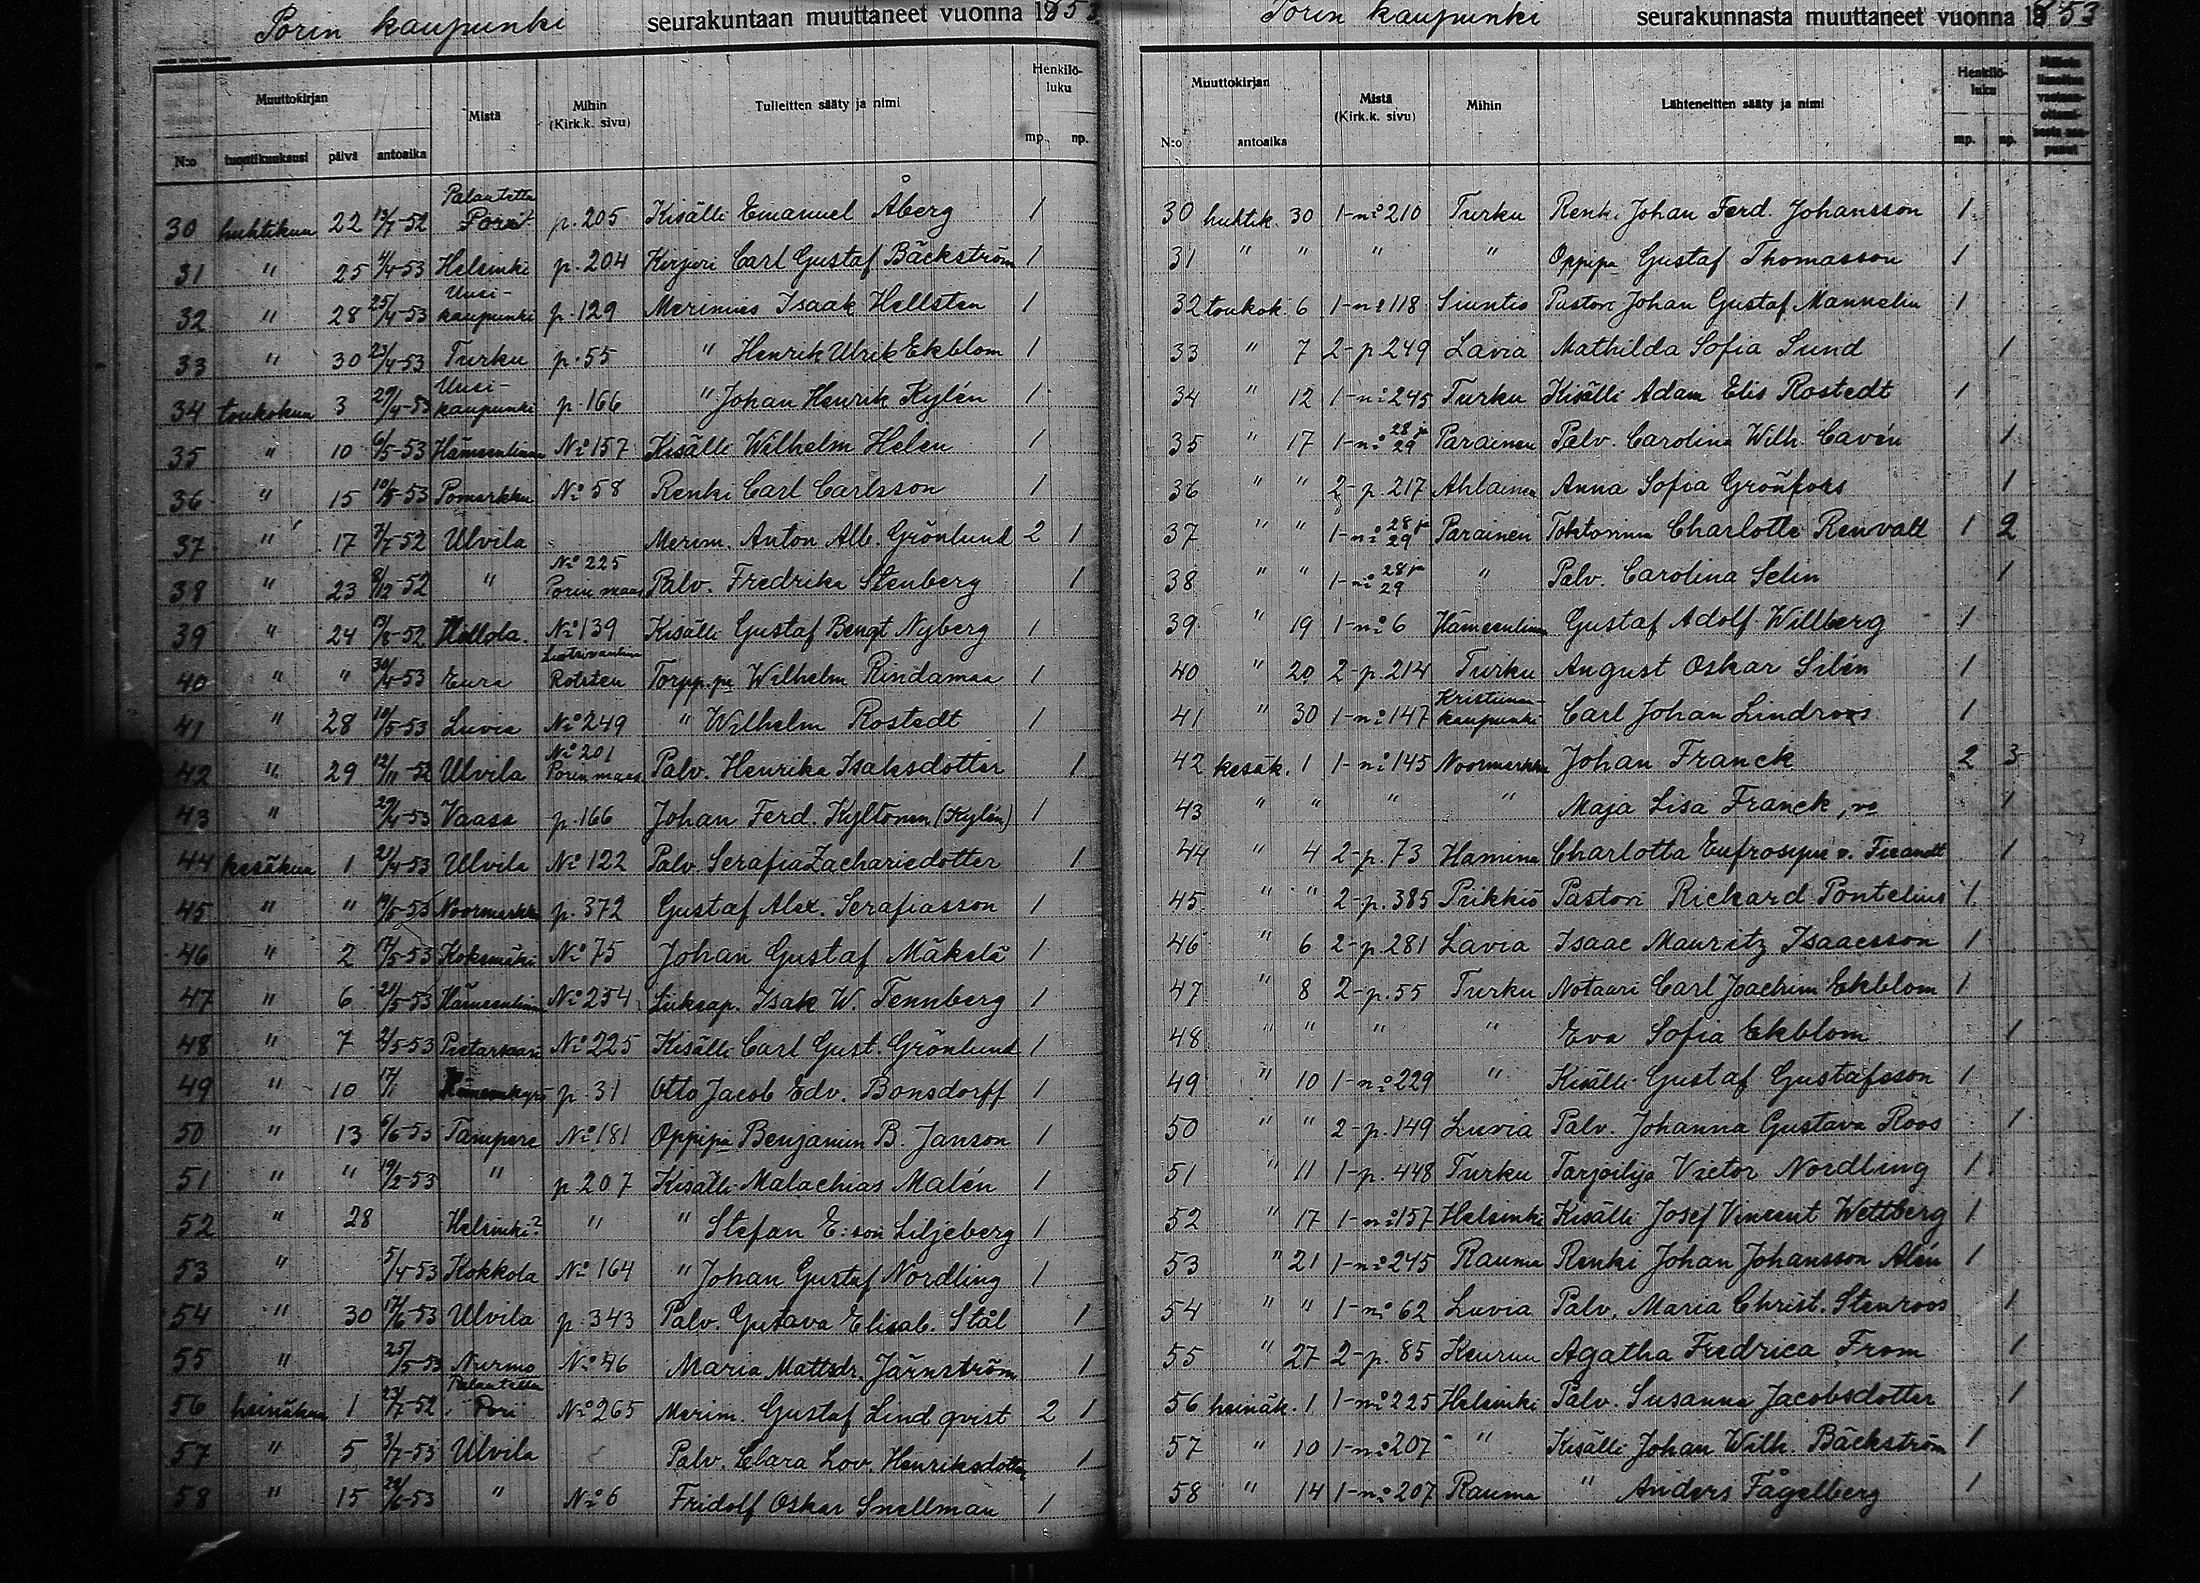 Porin kaupunki seurakuntaan muuttaneet vuonna 1853
Muuttokirjan Mistä Mihin (Kirk.k. sivu) Tulleitten sääty ja nimi Henkilö-luku
N:o tuontikuukausi päivä antoaika mp. np.
30 huhtikuu 22 13/7-52 Palautettu Pori p. 205 Kisälli Emanuel Åberg 1
31 " 25 4/4-53 Helsinki p. 204 Kirjuri Carl Gustaf Bäckström 1
32 " 28 25/4-53 Uusi-kaupunki p. 129 Merimies Isaak Hellsten 1
33 " 30 23/4-53 Turku p. 55 " Henrik Ulrik Ekblom 1
34 toukokuu 3 29/4-53 Uusi-kaupunki p. 166 " Johan Henrik Kylén 1
35 " 10 6/5-53 Hämeenlinna No 157 Kisälli Wilhelm Helen 1
36 " 15 10/5-53 Pomarkku No 58 Renki Carl Carlsson 1
37 " 17 7/7-52 Ulvila Merim. Anton Alb. Grönlund 2 1
38 " 23 8/12-52 " No 225 Porin maas Palv. Fredrika Stenberg 1
39 " 24 13/8-52 No 139 Kisälli Gustaf Bengt Nyberg 1
40 " " 30/4-53 Eura Rotsten Torpp.pa Wilhelm Rindamaa 1
41 " 28 10/5-53 Luvia No 249 " Wilhelm Rostedt 1
42 " 29 12/11-52 Ulvila No 201 Porin maas Palv. Henrika Isaksdotter 1
43 " 29/4-53 Vaasa p. 166 Johan Ferd. Kyltönen (Kylén) 1
44 kesäkuu 1 21/4-53 Ulvila No 122 Palv. Serafia Zachariedotter 1
45 " " 19/5-53 Noormarkku p. 372 Gustaf Alex. Serafiasson 1
46 " 2 17/5-53 Kokemäki No 75 Johan Gustaf Mäkelä 1
47 " 6 21/5-53 Hämeenlinna No 254 Liikeap. Isak W. Tennberg 1
48 " 7 2/5-53 Pietarsaari No 225 Kisälli Carl Gust. Grönlund 1
49 " 10 17/11 Hämeenkyrö p. 31 Otto Jacob Edv. Bonsdorff 1
50 " 13 6/6-53 Tampere No 181 Oppipa Benjamin B. Janson 1
51 " " 19/2-53 " p 207 Kisälli Malachias Malén 1
52 " 28 Helsinki? " " Stefan E:son Liljeberg 1
53 " 5/4-53 Kokkola No 164 " Johan Gustaf Nordling 1
54 " 30 17/6-53 Ulvila p. 343 Palv. Gustava Elisab. Stål 1
55 " 25/5-53 Nurmo No 46 Maria Mattsdr. Järnström 1
56 heinäkuu 1 23/7-52 Palautettu Pori No 265 Merim. Gustaf Lindqvist 2 1
57 " 5 3/7-53 Ulvila Palv. Clara Lov. Henriksdotter 1
58 " 15 28/6-53 " No 6 Fridolf Oskar Snellman 1
Porin kaupunki seurakunnasta muuttaneet vuonna 1853
Muuttokirjan Mistä (Kirk.k. sivu) Mihin Lähteneitten sääty ja nimi Henkilö-luku
N:o antoaika mp. np.
30 huhtik. 30 1-no 210 Turku Renki Johan Ferd. Johansson 1
31 " " " " Oppipa Gustaf Thomasson 1
32 toukok 6 1-no 118 Siuntio Pastori Johan Gustaf Mannelin 1
33 " 7 2-p. 249 Lavia Mathilda Sofia Sund 1
34 " 12 1-no 245 Turku Kisälli Adam Elis Rostedt 1
35 " 17 1-no 28 ja 29 Parainen Palv. Carolina Wilh. Cavén 1
36 " " 2-p. 217 Ahlainen Anna Sofia Grönfors 1
37 " " 1-no 28 ja 29 Parainen Tohtorinna Charlotte Renvall 1 2
38 " " 1-no 28 ja 29 " Palv. Carolina Selin 1
39 " 19 1-no 6 Hämeenlinna Gustaf Adolf Willberg 1
40 " 20 2-p. 214 Turku August Oskar Silén 1
41 " 30 1-no 147 Kristiinan-kaupunki Carl Johan Lindroos 1
42 kesäk. 1 1-no 145 Noormarkku Johan Franck 2 3
43 " " " " Maja Lisa Franck, vo 1
44 " 4 2-p. 73 Hamina Charlotta Eufrosyne v. Fieandt 1
45 " " 2-p. 385 Piikkiö Pastori Rickard Pontelius 1
46 " 6 2-p. 281 Lavia Isaac Mauritz Isaacsson 1
47 " 8 2-p. 55 Turku Notaari Carl Joachim Ekblom 1
48 " " " " Eva Sofia Ekblom 1
49 " 10 1-no 229 " Kisälli Gustaf Gustafsson 1
50 " " 2-p. 149 Luvia Palv. Johanna Gustava Roos 1
51 " 11 1-p. 448 Turku Tarjoilija Victor Nordling 1
52 " 17 1-no 157 Helsinki Kisälli Josef Vincent Wettberg 1
53 " 21 1-no 245 Rauma Renki Johan Johansson Alén 1
54 " " 1-no 62 Luvia Palv. Maria Christ. Stenroos 1
55 " 27 2-p. 85 Keuruu Agatha Fredrica From 1
56 heinäk. 1 1-no 225 Helsinki Palv. Susanna Jacobsdotter 1
57 " 10 1-no 207 " Kisälli Johan Wilh. Bäckström 1
58 " 14 1-no 207 Rauma " Anders Fågelberg 1